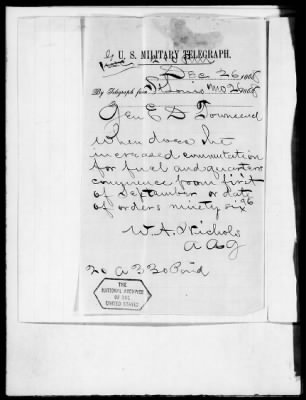 U. S. MILITARY TELEGRAPH.
Dec 26 1868
By Telegraph from St Louis Mo 26 1868
Gen E D Townsend
When does the
increased commutation
for fuel and quarters
commence from first
of September or date
of orders ninety six 96
W. A. Nichols
A A G
20 a 330 Paid
THE
NATIONAL ARCHIVES
OF THE
UNITED STATES